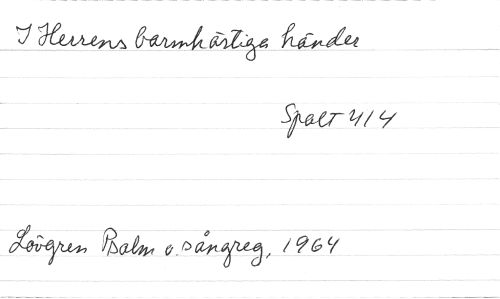 I Herrens barmhärtiga händer
Spalt 414
Lövgren Psalm o. sångreg, 1964